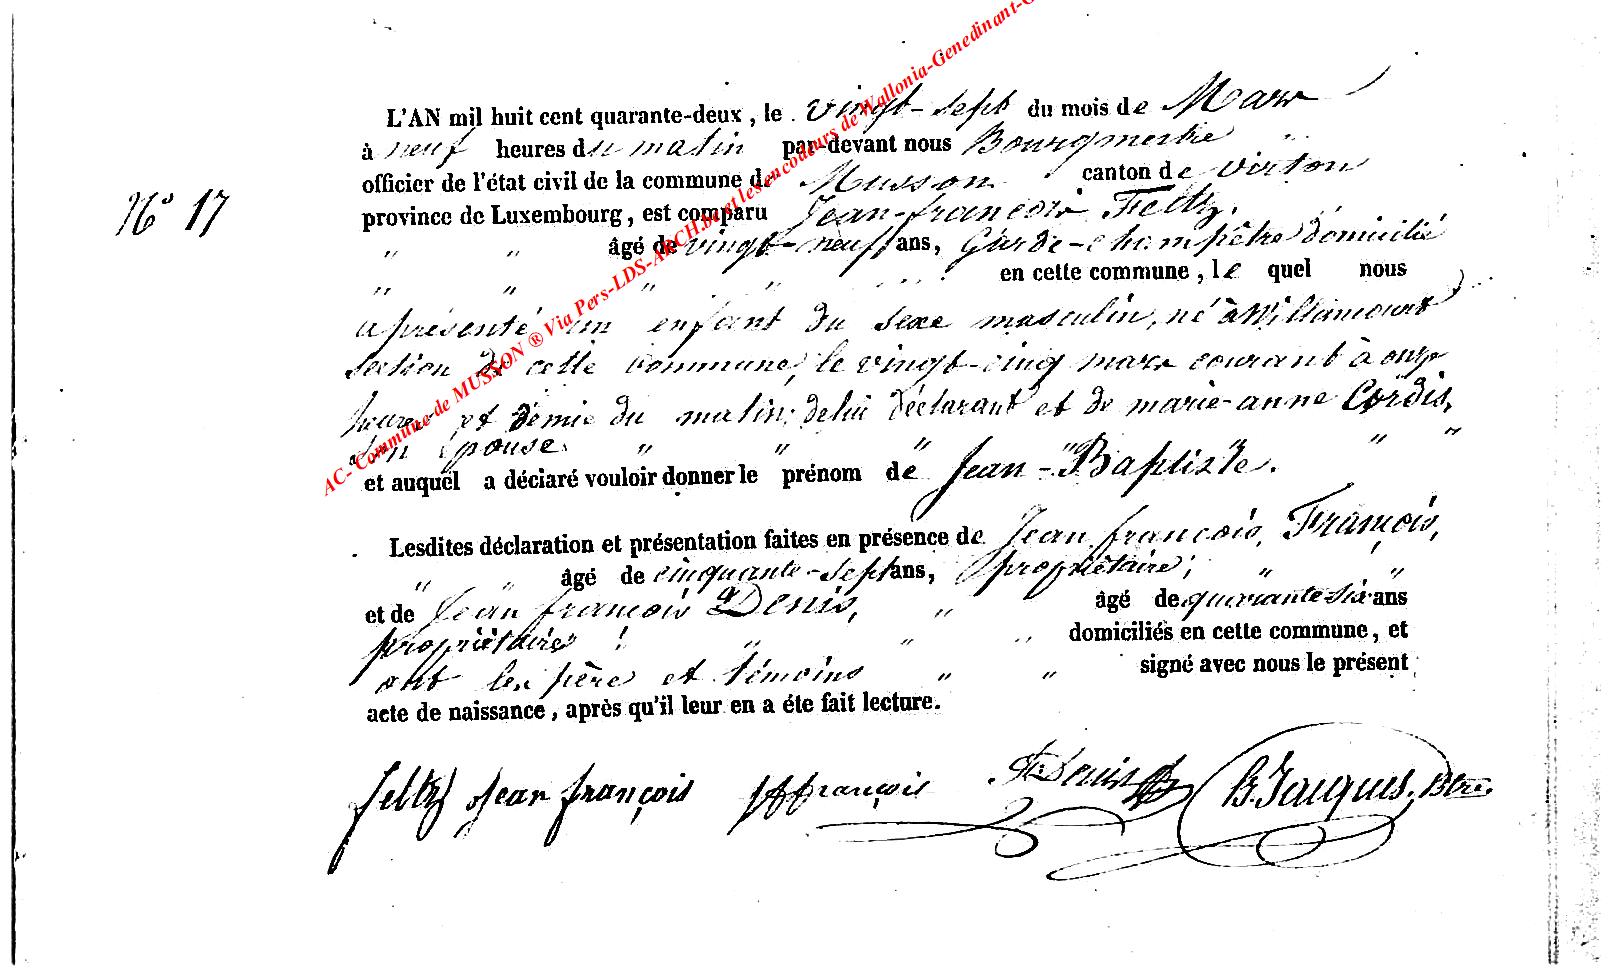 L'AN mil huit cent quarante-deux, le vingt-sept du mois de Mars
à neuf heures du matin par devant nous Bourgmestre "
officier de l'état civil de la commune de Musson canton de Virton
N° 17
province de Luxembourg, est comparu Jean-françois Feltz,
" " âgé de vingt-neuf ans, Garde-champêtre domicilié
en cette commune, le quel nous
" " " " "
a présenté un enfant du sexe masculin, né à Willancourt
section de cette commune, le vingt-cinq mars courant à onze
heures et demie du matin, de lui déclarant et de marie-anne Cordis,
son épouse " " " " "
et auquel a déclaré vouloir donner le prénom de Jean-Baptiste.
Lesdites déclaration et présentation faites en présence de Jean françois, François,
" " âgé de cinquante-sept ans, propriétaire, " "
et de Jean françois Denis, " âgé de quarante six ans
propriétaire " " " domiciliés en cette commune, et
ont les père et témoins " " signé avec nous le présent
acte de naissance, après qu'il leur en a éte fait lecture.
feltz Jean françois jf françois Denis B. Jacques, Btre.
AC- Commune de MUSSON ® Via Pers-LDS-ARCH.be et les encodeurs de Wallonia-Genedinant-G